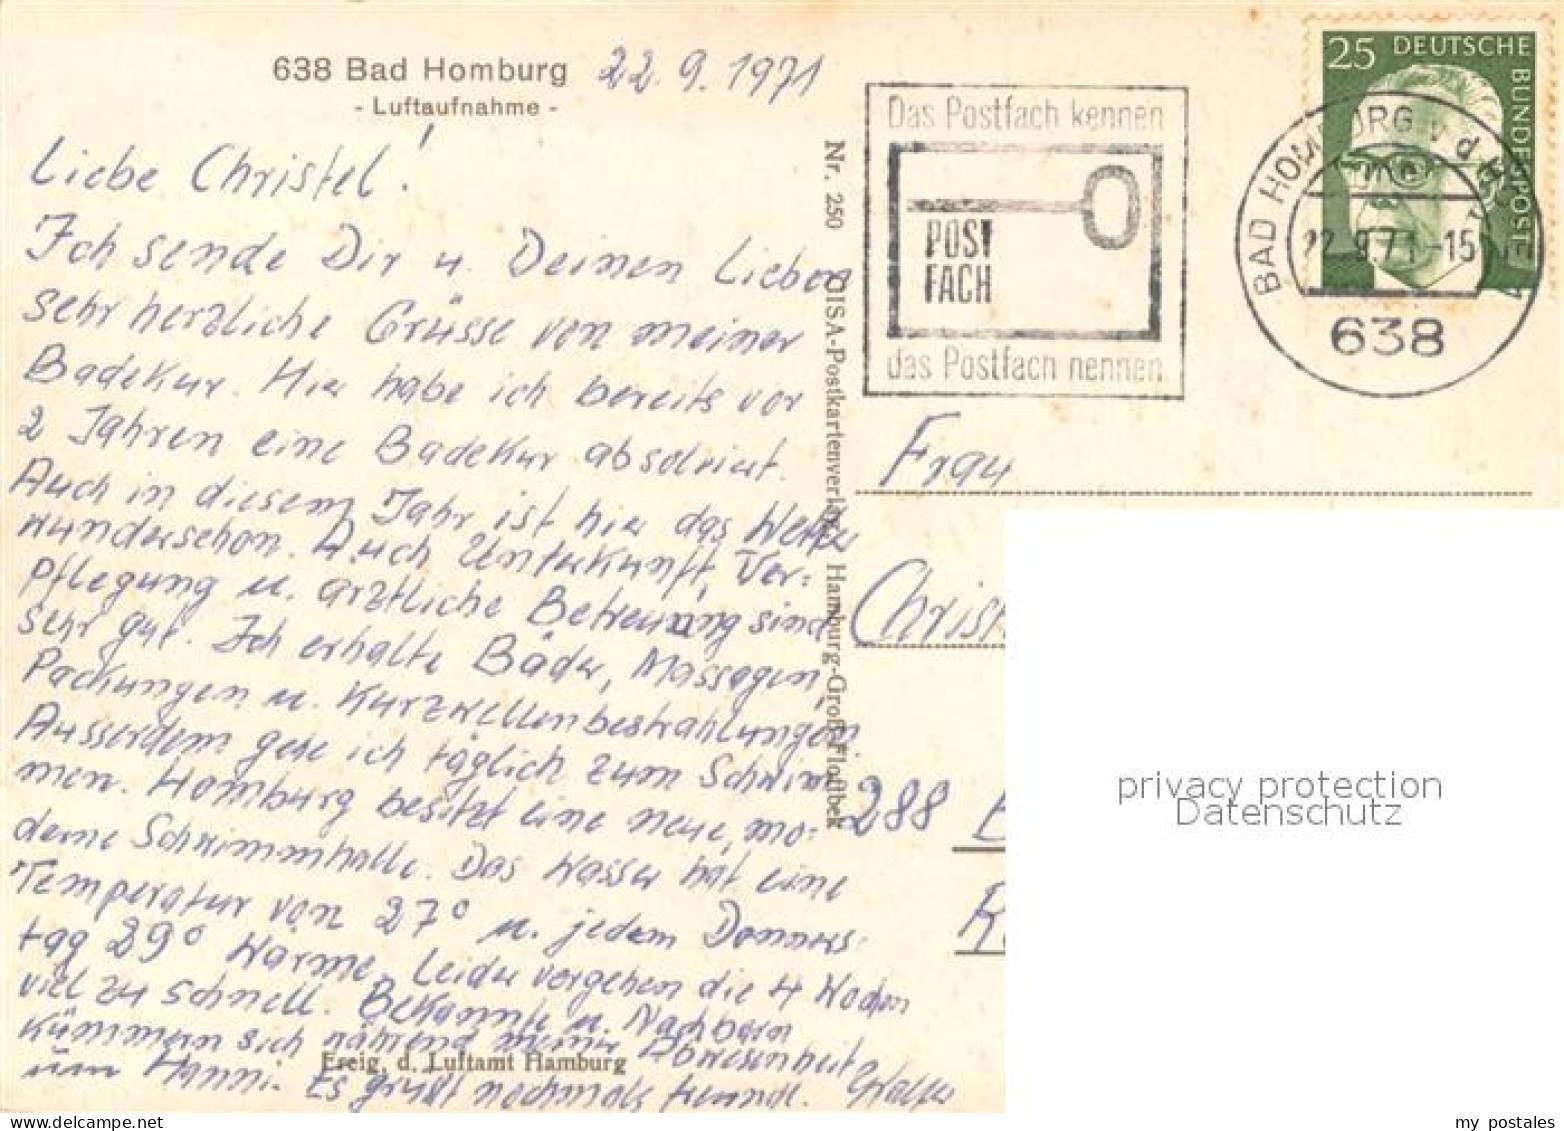 638 Bad Homburg
- Luftaufnahme -
22.9.1971
Liebe Christel!
Ich sende Dir u. Deinen Lieben
sehr herzliche Grüsse von meiner
Badekur. Hier habe ich bereits vor
2 Jahren eine Badekur absolviert.
Auch in diesem Jahr ist hier das Wetter
wunderschön. Auch Unterkunft, Ver=
pflegung u. ärztliche Betreuung sind
sehr gut. Ich erhalte Bäder, Massagen,
Packungen u. Kurzwellenbestrahlungen.
Ausserdem gehe ich täglich zum Schwim
men. Homburg besitzt eine neue, mo=
derne Schwimmhalle. Das Wasser hat eine
Temperatur von 27° u. jeden Donners=
tag 29° Wärme. Leider vergehen die 4 Wochen
viel zu schnell. Bekannte u. Nachbarn
kümmern sich während meiner Abwesenheit
um Hanni. Es grüßt nochmals freundl.
Ereig. d. Luftamt Hamburg
Nr. 250
DISA-Postkartenverlag Hamburg-Groß-Flottbek
Das Postfach kennen
POST
FACH
das Postfach nennen.
25 DEUTSCHE BUNDESPOST
BAD HOMBURG v d H
22.9.71-15
638
Frau
Christ
288 B
privacy protection
Datenschutz
my postales